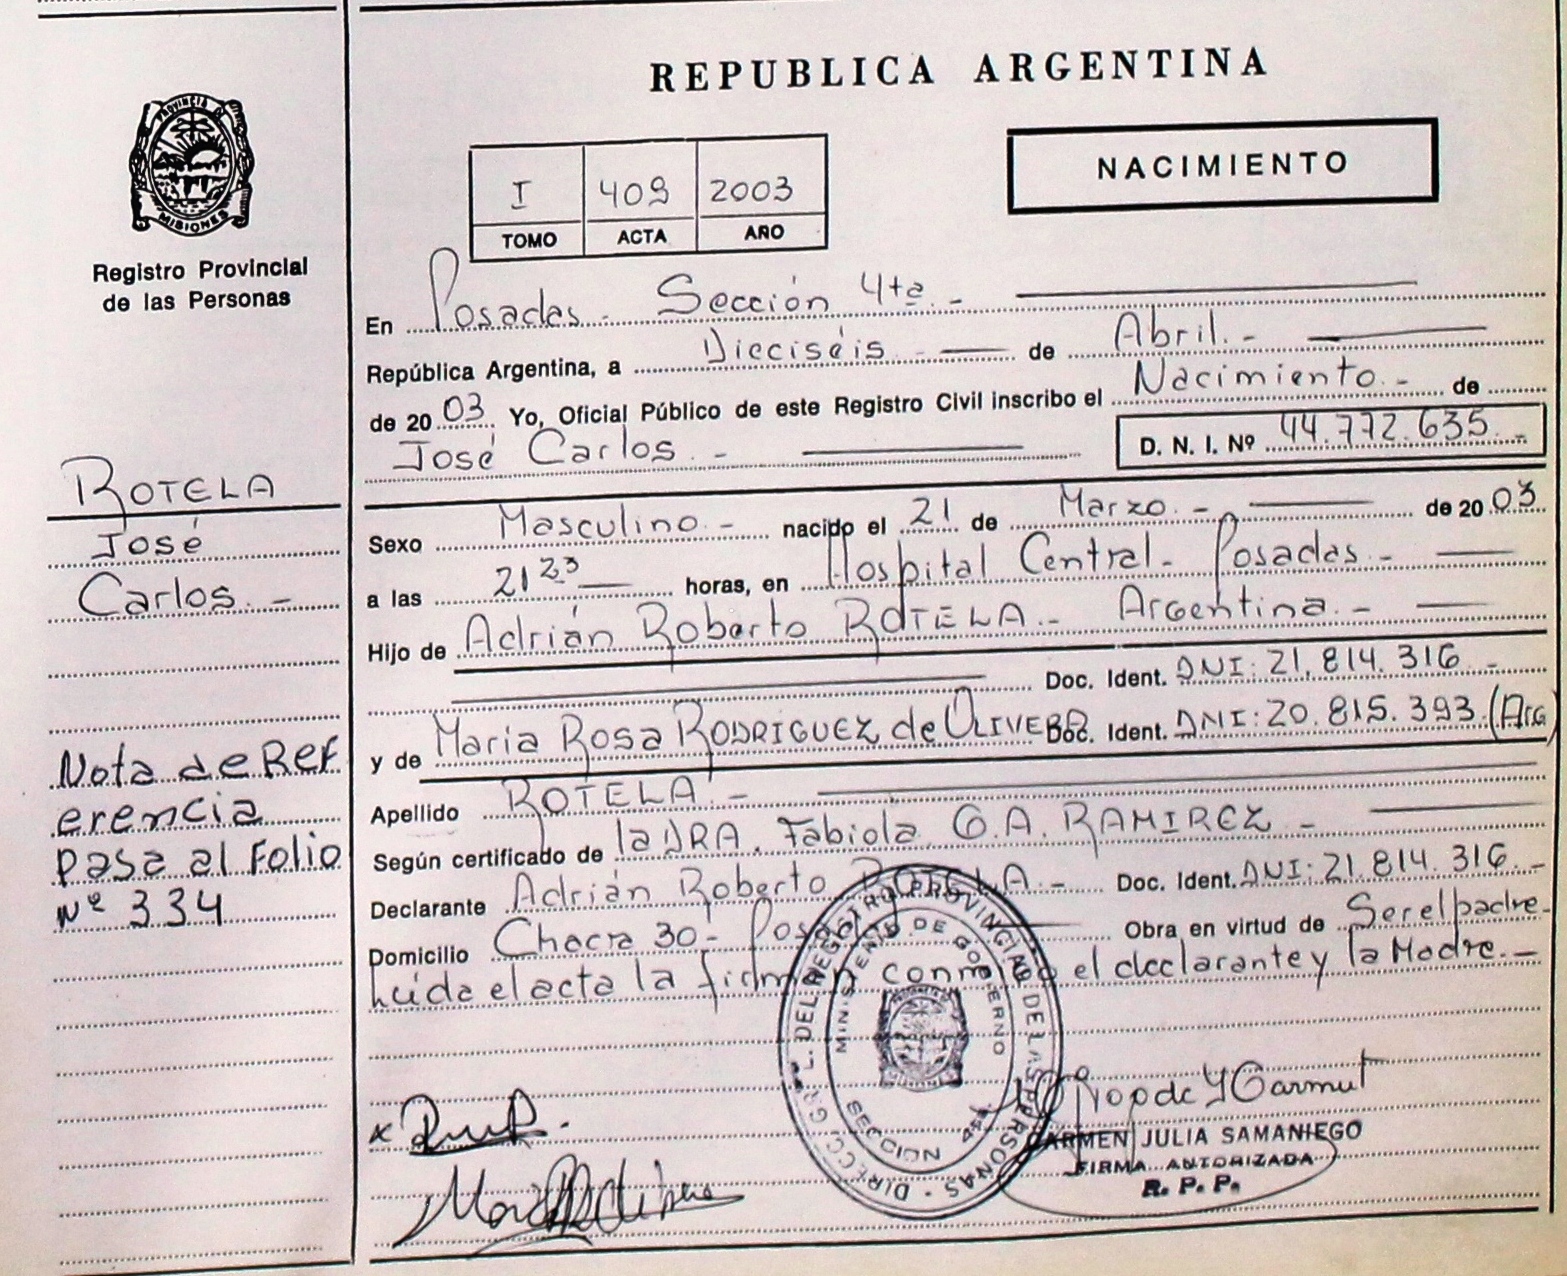 REPUBLICA ARGENTINA
PROVINCIA D
MISIONES
Registro Provincial
de las Personas
NACIMIENTO
I 409 2003
TOMO ACTA AÑO
En Posadas - Sección 4ta -
República Argentina, a Dieciséis - de Abril. -
de 2003 Yo, Oficial Público de este Registro Civil inscribo el Nacimiento. - de
José Carlos - D. N. I. Nº 44.772.635. -
ROTELA
José
Carlos. -
Sexo Masculino. - nacido el 21 de Marzo. - de 2003
a las 21 23 horas, en Hospital Central - Posadas. -
Hijo de Adrián Roberto ROTELA. - Argentina. -
Doc. Ident. DNI: 21.814.316 -
y de Maria Rosa RODRIGUEZ de OLIVERA Doc. Ident. DNI: 20.815.393 (Arg)
Apellido ROTELA -
Según certificado de la DRA. Fabiola G. A. RAMIREZ -
Declarante Adrián Roberto ROTELA - Doc. Ident. DNI: 21.814.316. -
Domicilio Chacra 30 - Posadas Obra en virtud de Ser el padre -
Leída el acta la firman conmigo el declarante y la Madre. -
Nota de Ref
erencia
pasa al Folio
Nº 334
DIRECC. GRAL. DEL REGISTRO PROVINCIAL DE LAS PERSONAS -
MINIST. DE GOBIERNO
SECCION 4ta.
CARMEN JULIA SAMANIEGO
FIRMA AUTORIZADA
R. P. P.